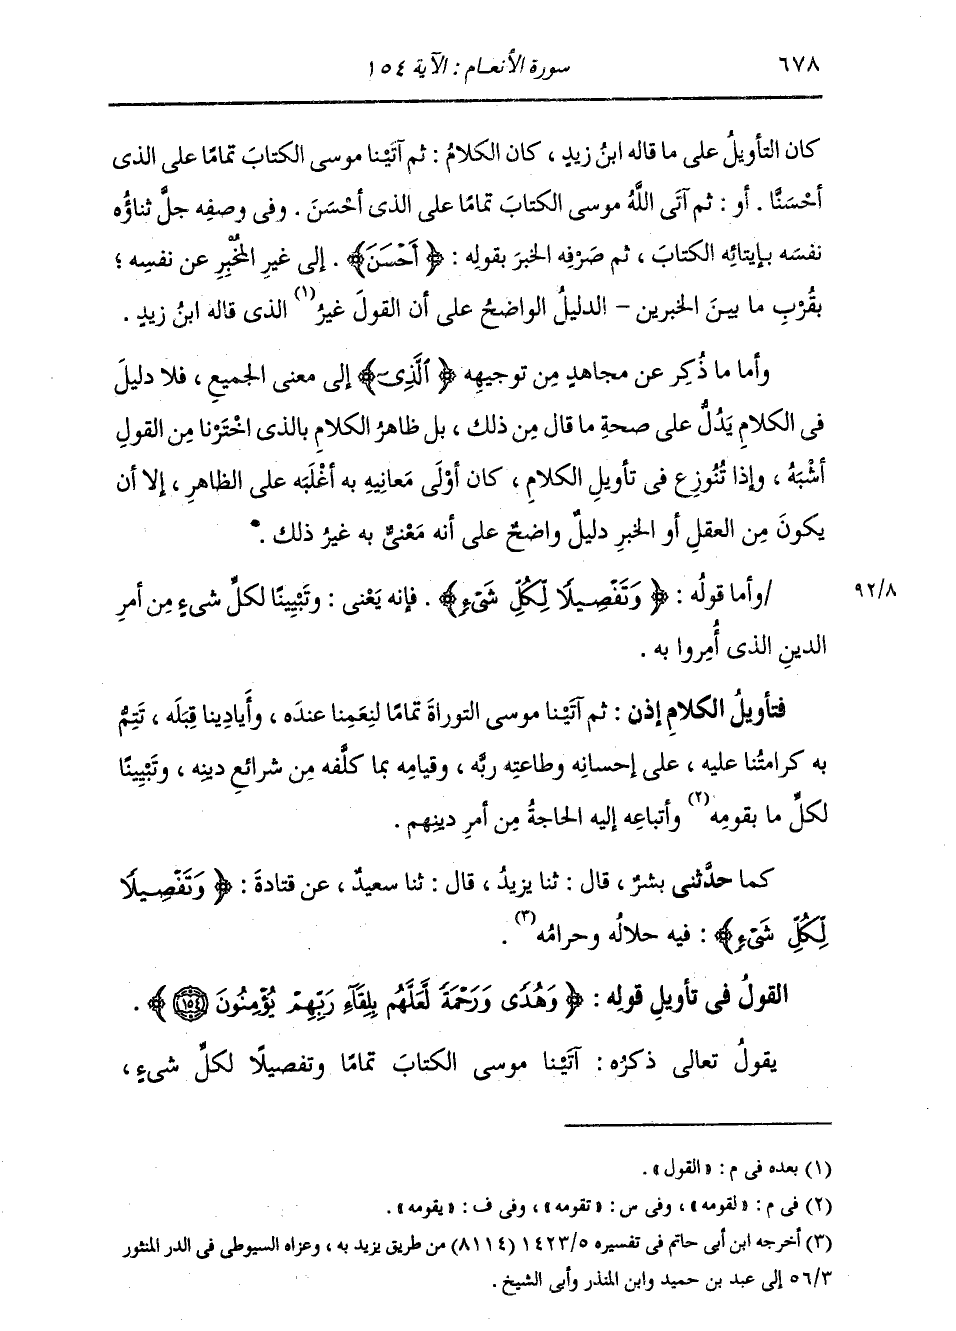 ٦٧٨ سورة الأنعام : الآية ١٥٤
كان التأويلُ على ما قاله ابنُ زيدٍ ، كان الكلامُ : ثم آتَيْنا موسى الكتابَ تمامًا على الذى
أحْسَنَّا . أو : ثم آتَى اللَّهُ موسى الكتابَ تمامًا على الذى أحْسَنَ . وفى وصفِه جلَّ ثناؤُه
نفسَه بإيتائِه الكتابَ ، ثم صَرْفِه الخبرَ بقولِه : ﴿ أَحْسَنَ﴾ . إلى غيرِ المُخْبِرِ عن نفسِه ؛
بقُرْبِ ما بينَ الخبرين - الدليلُ الواضحُ على أن القولَ غيرُ(١) الذى قاله ابنُ زيدٍ .
وأما ما ذُكِر عن مجاهدٍ مِن توجيهِه ﴿ ٱلَّذِىٓ﴾ إلى معنى الجميعِ ، فلا دليلَ
فى الكلامِ يَدُلُّ على صحةِ ما قال مِن ذلك ، بل ظاهرُ الكلامِ بالذى اخْتَرْنا مِن القولِ
أشْبَهُ ، وإذا تُنُوزِع فى تأويلِ الكلامِ ، كان أوْلَى مَعانِيهِ به أغْلَبَه على الظاهرِ ، إلا أن
يكونَ مِن العقلِ أو الخبرِ دليلٌ واضحٌ على أنه مَعْنىٌّ به غيرُ ذلك .
/وأما قولُه : ﴿ وَتَفْصِيلًا لِّكُلِّ شَىْءٍ﴾ . فإنه يَعْنى : وتَبْيينًا لكلِّ شىءٍ مِن أمرِ ٩٢/٨
الدينِ الذى أُمِروا به .
فتأويلُ الكلامِ إذن : ثم آتَيْنا موسى التوراةَ تمامًا لنِعَمِنا عندَه ، وأَيادِينا قِبَلَه ، تَتِمُّ
به كرامتُنا عليه ، على إحسانِه وطاعتِه ربَّه ، وقيامِه بما كلَّفه مِن شرائعِ دينِه ، وتَبْيينًا
لكلِّ ما بقومِه(٢) وأتباعِه إليه الحاجةُ مِن أمرِ دينِهم .
كما حدَّثنى بشرٌ ، قال : ثنا يزيدُ ، قال : ثنا سعيدٌ ، عن قتادةَ : ﴿ وَتَفْصِيلًا
لِّكُلِّ شَىْءٍ﴾ : فيه حلالُه وحرامُه(٣) .
القولُ فى تأويلِ قولِه : ﴿ وَهُدًى وَرَحْمَةً لَّعَلَّهُم بِلِقَآءِ رَبِّهِمْ يُؤْمِنُونَ (١٥٤) ﴾ .
يقولُ تعالى ذكرُه : آتَيْنا موسى الكتابَ تمامًا وتفصيلًا لكلِّ شىءٍ ،
(١) بعده فى م : « القول » .
(٢) فى م : « لقومه » ، وفى س : « تقومه » ، وفى ف : « يقومه » .
(٣) أخرجه ابن أبى حاتم فى تفسيره ١٤٢٣/٥ (٨١١٤) من طريق يزيد به ، وعزاه السيوطى فى الدر المنثور
٥٦/٣ إلى عبد بن حميد وابن المنذر وأبى الشيخ .